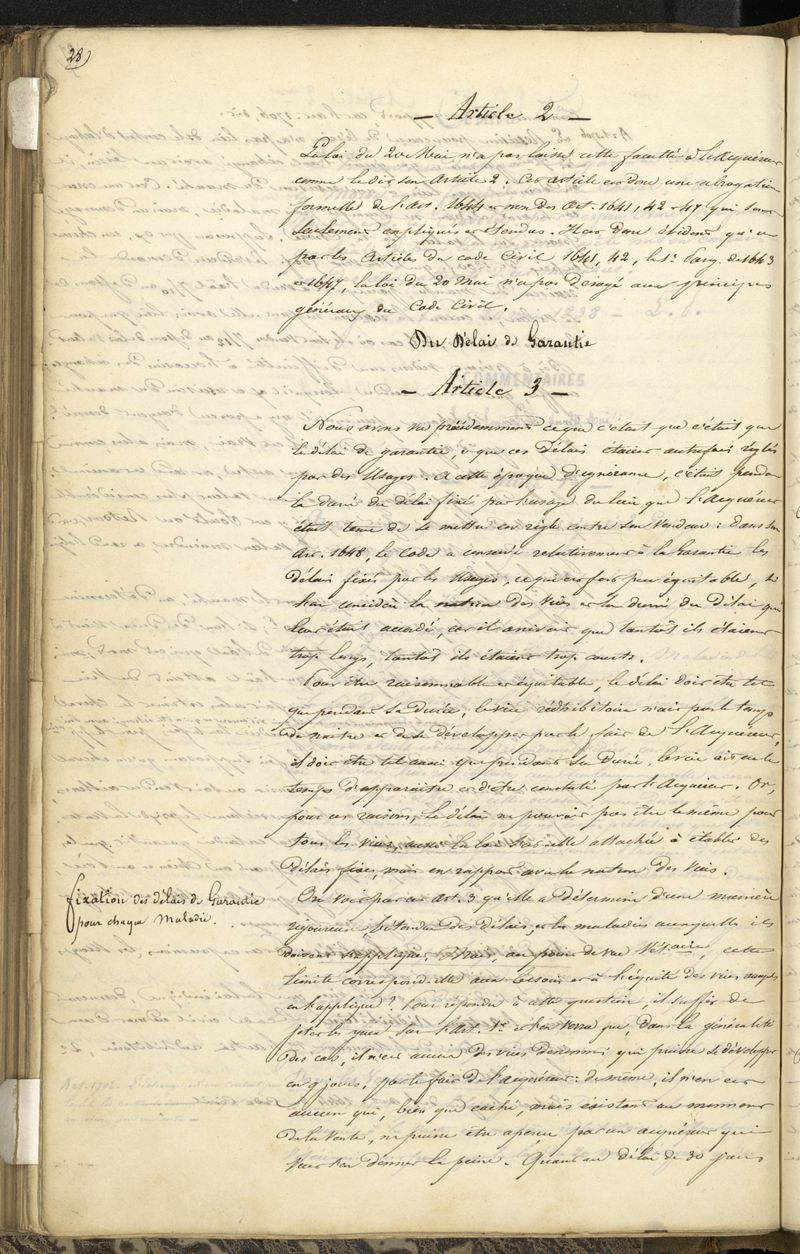 28)
— Article 2 —
La loi du 20 Mai n'a pas laissé cette faculté à l'Acquéreur
comme le dit son Article 2. Cet article est donc une abrogation
formelle de l'Art. 1644 et non des Art. 1641, 42 et 47 qui sont
seulement expliqués et étendus. Il est donc évident qu'
par les Articles du code Civil 1641, 42, le 1er Parag. de 1643
et 1647, la loi du 20 Mai n'a pas dérogé aux principes
généraux du Code Civil.
Du Délai de Garantie
— Article 3 —
Nous avons vu précédemment ce que c'était que c'était que
le délai de garantie, et que ces Délais étaient autrefois réglés
par des Usages. A cette époque d'ignorance, c'était pendant
la durée du délai fixé par l'usage du lieu que l'Acquéreur
était tenu de se mettre en règle contre son Vendeur : dans son
Art. 1648, le Code a conservé relativement à la Garantie les
Délais fixés par les Usages, ce qui est fort peu équitable, si
l'on considère la nature des vices et la durée du Délai qui
leur était accordé, car il arrivait que tantôt ils étaient
trop longs, tantôt ils étaient trop courts.
Pour être raisonnable et équitable, le délai doit être tel
que pendant sa durée, le vice rédhibitoire n'ait pas le temps
de naître et de se développer par le fait de l'Acquéreur,
il doit être tel aussi que pendant sa durée, le vice ait eu le
temps d'apparaître et d'être constaté par l'Acquéreur. Or,
pour ces raisons, le délai ne pouvait pas être le même pour
tous les vices, aussi la loi s'est-elle attachée à établir des
Délais fixes, mais en rapport avec la nature des vices.
fixation des délais de Garantie
pour chaque Maladie.
On voit par cet Art. 3 qu'elle a déterminé d'une manière
rigoureuse, l'étendue des Délais, et les maladies auxquelles ils
doivent s'appliquer. Mais, au point de vue Vétaire, cette
limite correspond-elle aux besoins et à l'équité des vices auxquels
on l'applique ? Pour répondre à cette question, il suffit de
jeter les yeux sur l'Art. 1er et l'on verra que, dans la généralité
des cas, il n'est aucun des vices dénommés qui puisse se développer
en 9 jours, par le fait de l'acquéreur : de même, il n'en est
aucun qui, bien que caché, mais existant au moment
de la vente, ne puisse être aperçu par un acquéreur qui
veut s'en donner la peine. Quant au délai de 30 jours